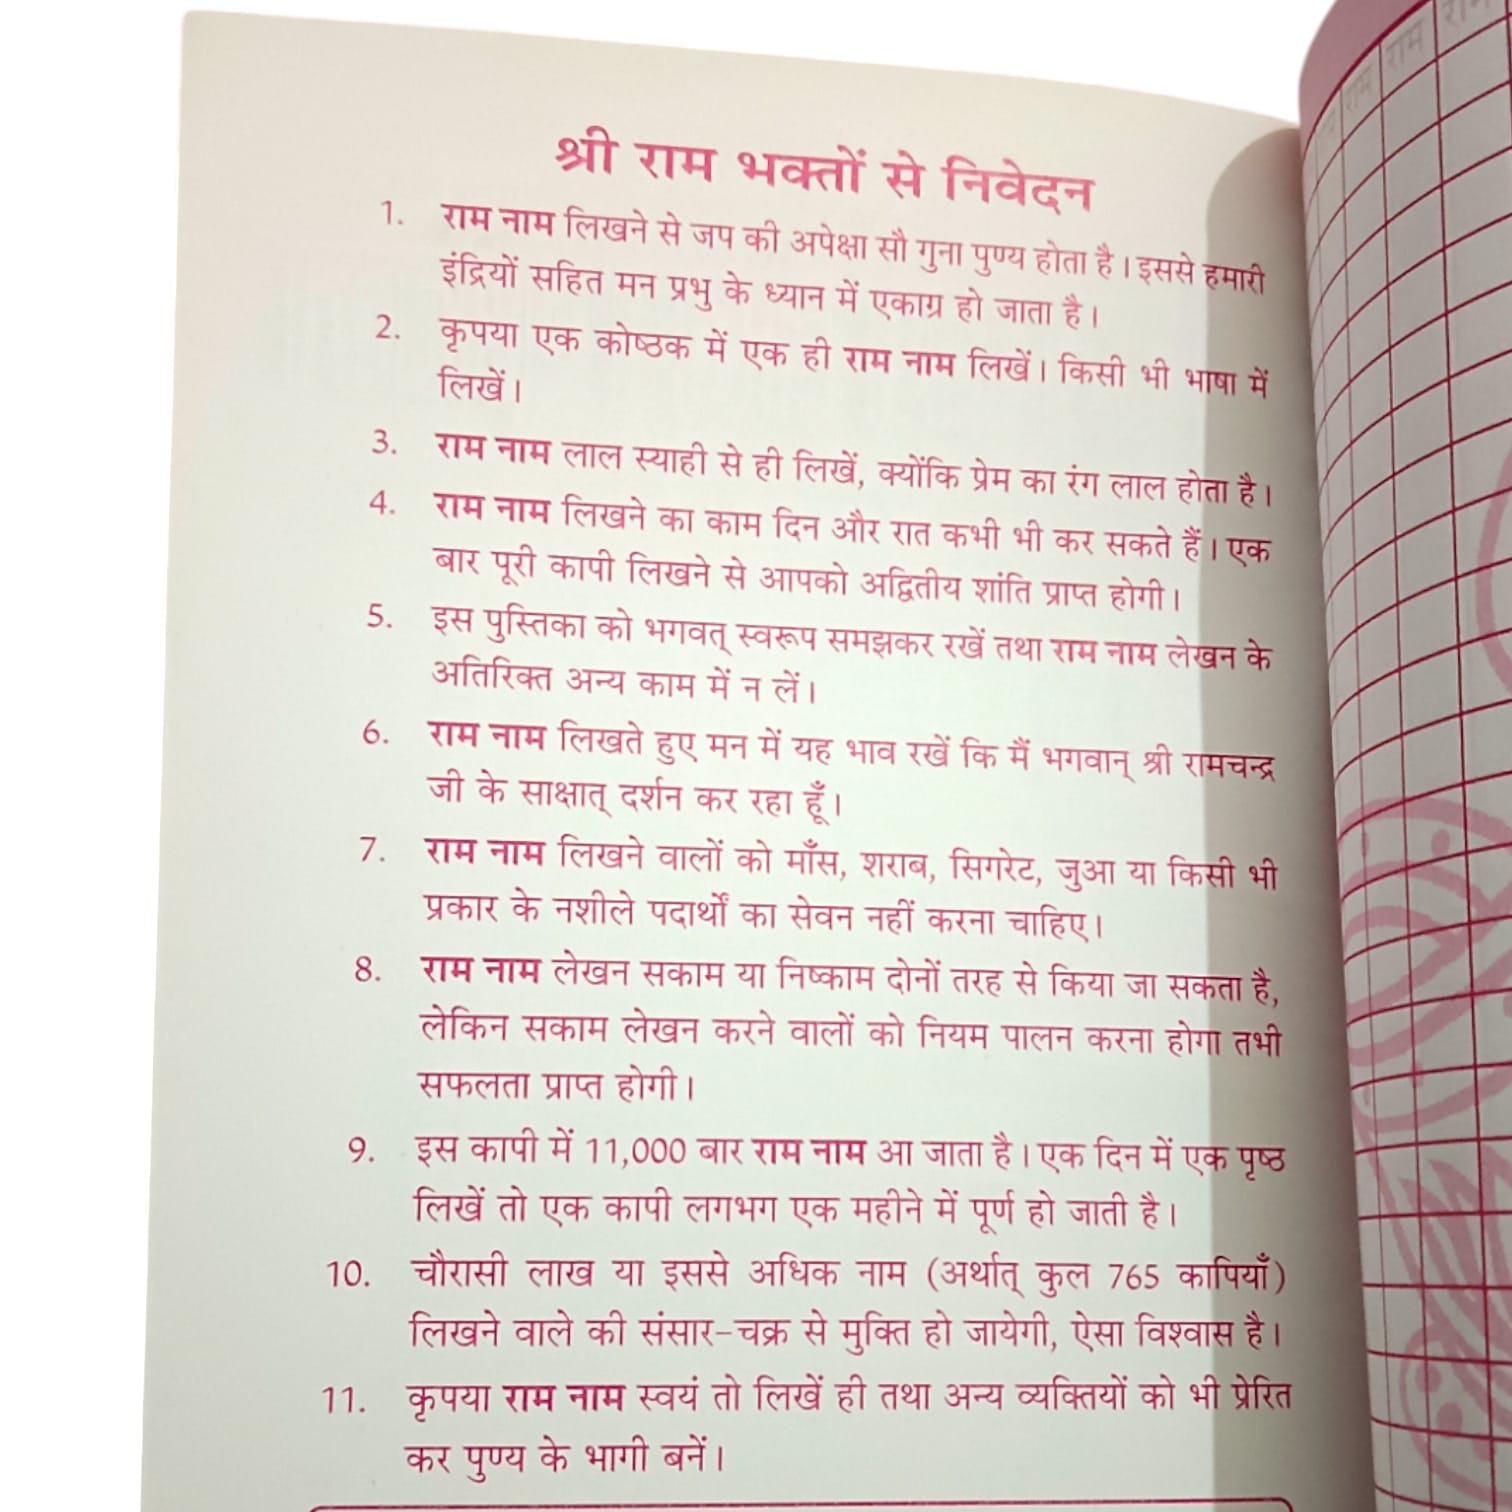 श्री राम भक्तों से निवेदन
1. राम नाम लिखने से जप की अपेक्षा सौ गुना पुण्य होता है। इससे हमारी
इंद्रियों सहित मन प्रभु के ध्यान में एकाग्र हो जाता है।
2. कृपया एक कोष्ठक में एक ही राम नाम लिखें। किसी भी भाषा में
लिखें।
3. राम नाम लाल स्याही से ही लिखें, क्योंकि प्रेम का रंग लाल होता है।
4. राम नाम लिखने का काम दिन और रात कभी भी कर सकते हैं। एक
बार पूरी कापी लिखने से आपको अद्वितीय शांति प्राप्त होगी।
5. इस पुस्तिका को भगवत् स्वरूप समझकर रखें तथा राम नाम लेखन के
अतिरिक्त अन्य काम में न लें।
6. राम नाम लिखते हुए मन में यह भाव रखें कि मैं भगवान् श्री रामचन्द्र
जी के साक्षात् दर्शन कर रहा हूँ।
7. राम नाम लिखने वालों को माँस, शराब, सिगरेट, जुआ या किसी भी
प्रकार के नशीले पदार्थों का सेवन नहीं करना चाहिए।
8. राम नाम लेखन सकाम या निष्काम दोनों तरह से किया जा सकता है,
लेकिन सकाम लेखन करने वालों को नियम पालन करना होगा तभी
सफलता प्राप्त होगी।
9. इस कापी में 11,000 बार राम नाम आ जाता है। एक दिन में एक पृष्ठ
लिखें तो एक कापी लगभग एक महीने में पूर्ण हो जाती है।
10. चौरासी लाख या इससे अधिक नाम (अर्थात् कुल 765 कापियाँ)
लिखने वाले की संसार-चक्र से मुक्ति हो जायेगी, ऐसा विश्वास है।
11. कृपया राम नाम स्वयं तो लिखें ही तथा अन्य व्यक्तियों को भी प्रेरित
कर पुण्य के भागी बनें।
राम राम